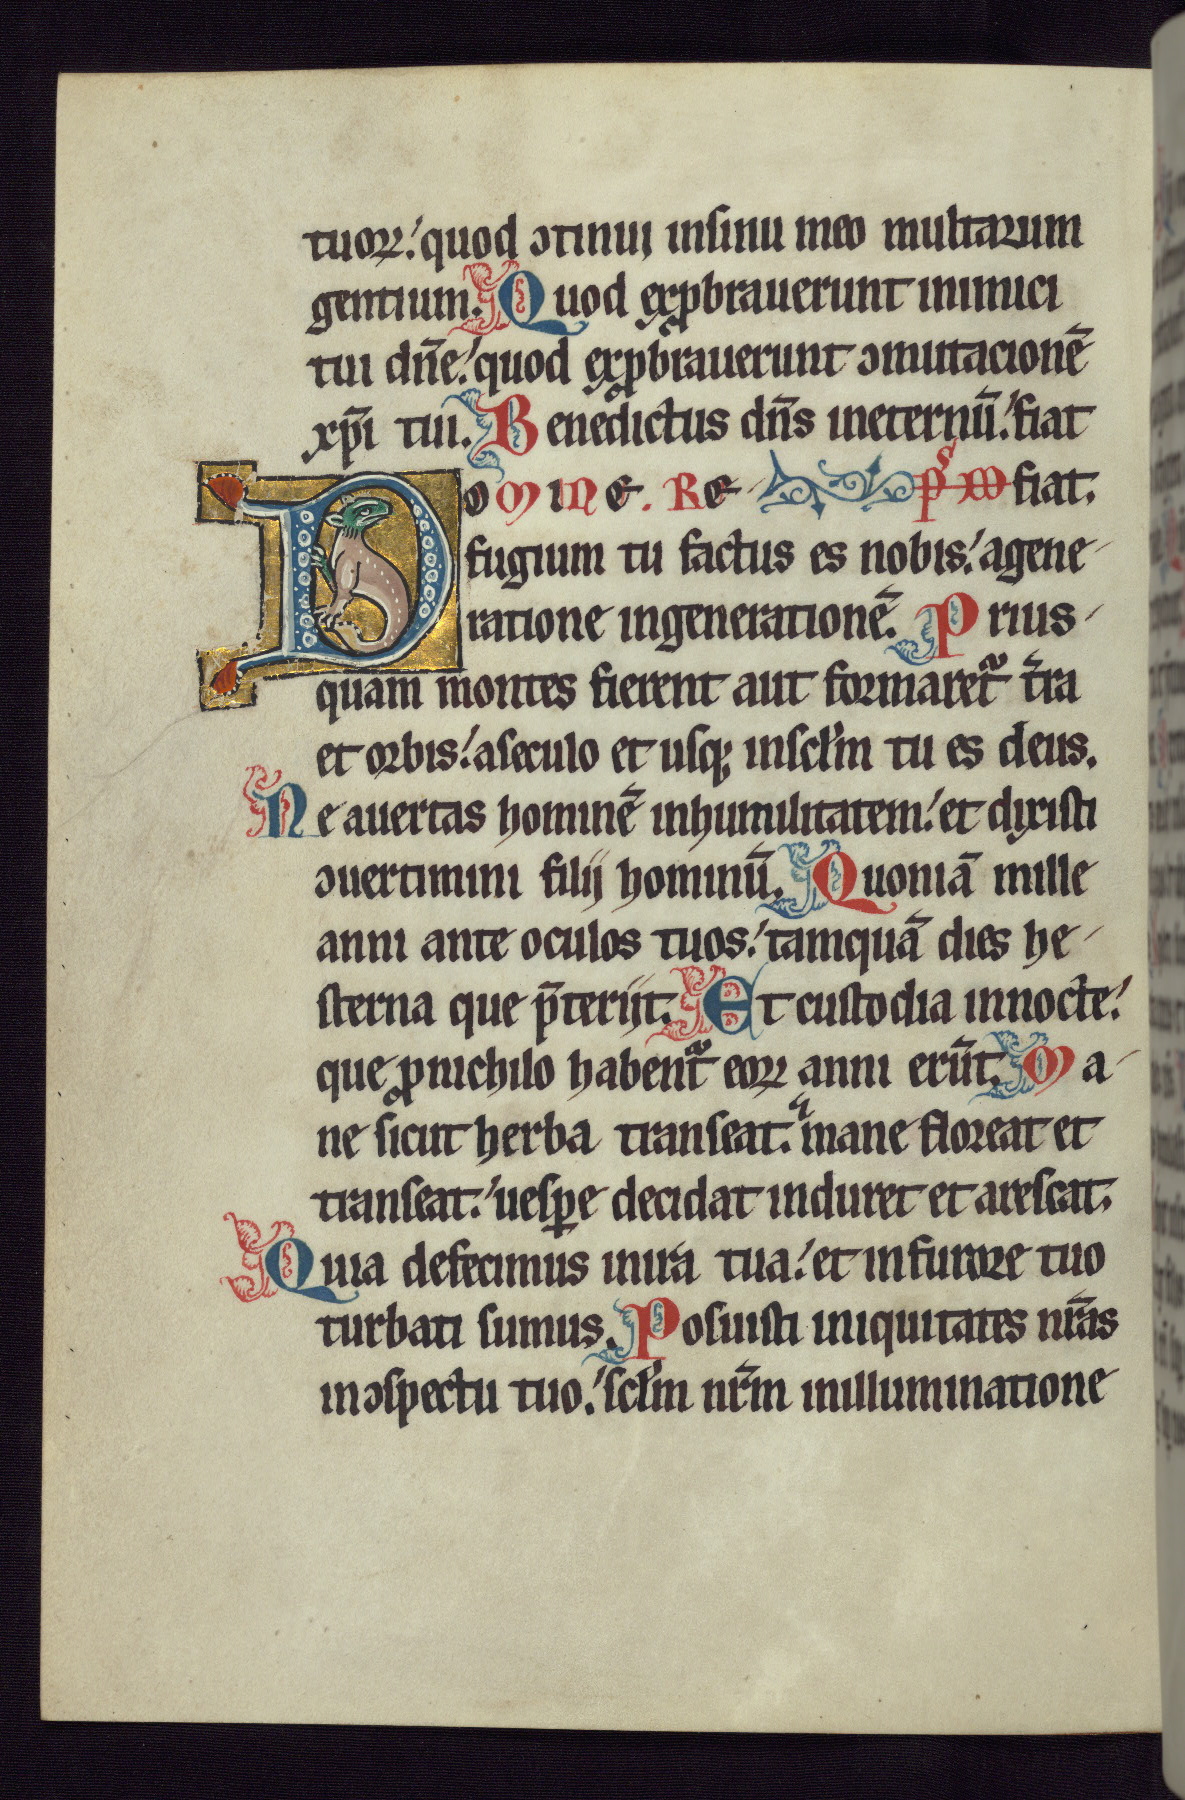 tuoꝝ. quod ɔtinui insinu meo multarum
gentium. Quod exꝓbrauerunt inimici
tui dn̄e. quod exꝓbrauerunt ɔmutacionē
xp̄i tui. Benedictus dn̄s ineternū. fiat
DOMINE. RE psm fiat.
fugium tu factus es nobis. agene-
ratione ingenerationē. Prius-
quam montes fierent aut formaret᷑ t̄ra
et orbis. aseculo et usqꝫ insclm̄ tu es deus.
Ne auertas hominē inhumilitatem. et dixisti
ɔuertimini filij hominū. Quoniā mille
anni ante oculos tuos. tamquā dies he-
sterna que p̄terijt. Et custodia innocte.
que ꝓnichilo habent᷑ eoꝝ anni erūt. Ma-
ne sicut herba transeat. mane floreat et
transeat. uesꝑe decidat induret et arescat.
Quia defecimus inira tua. et infurore tuo
turbati sumus. Posuisti iniquitates nr̄as
inɔspectu tuo. sclm̄ nrm̄ inilluminatione